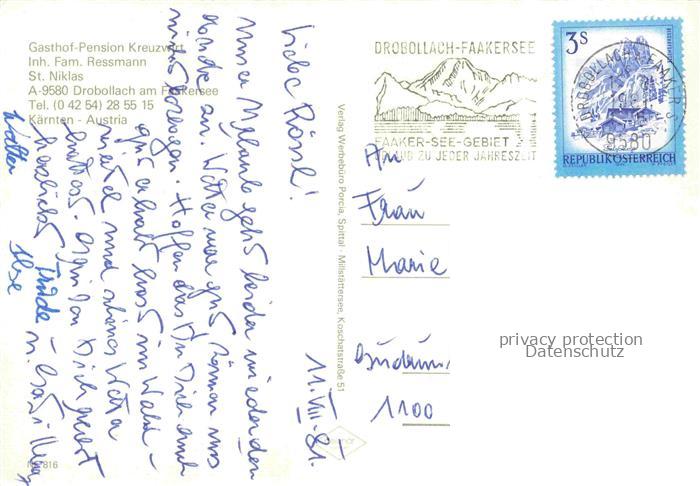 Gasthof-Pension Kreuzwirt
Inh. Fam. Ressmann
St. Niklas
A-9580 Drobollach am Faakersee
Tel. (0 42 54) 28 55 15
Kärnten - Austria
11. VIII. 81.
Unser Urlaub geht leider wieder dem
Ende zu. Wetter war gut können uns
nicht beklagen. Hoffen das Du Dich auch
gut erholt hast im Wald-
viertel und schönes Wetter
herzlichst Trude
Walter
Ilse
Nr. 816
Verlag Werbebüro Porcia, Spittal - Millstättersee, Koschatstraße 51
DROBOLLACH-FAAKERSEE
FAAKER-SEE-GEBIET
URLAUB ZU JEDER JAHRESZEIT
3S
REPUBLIK ÖSTERREICH
9580
An
Frau
Marie
1100
privacy protection
Datenschutz